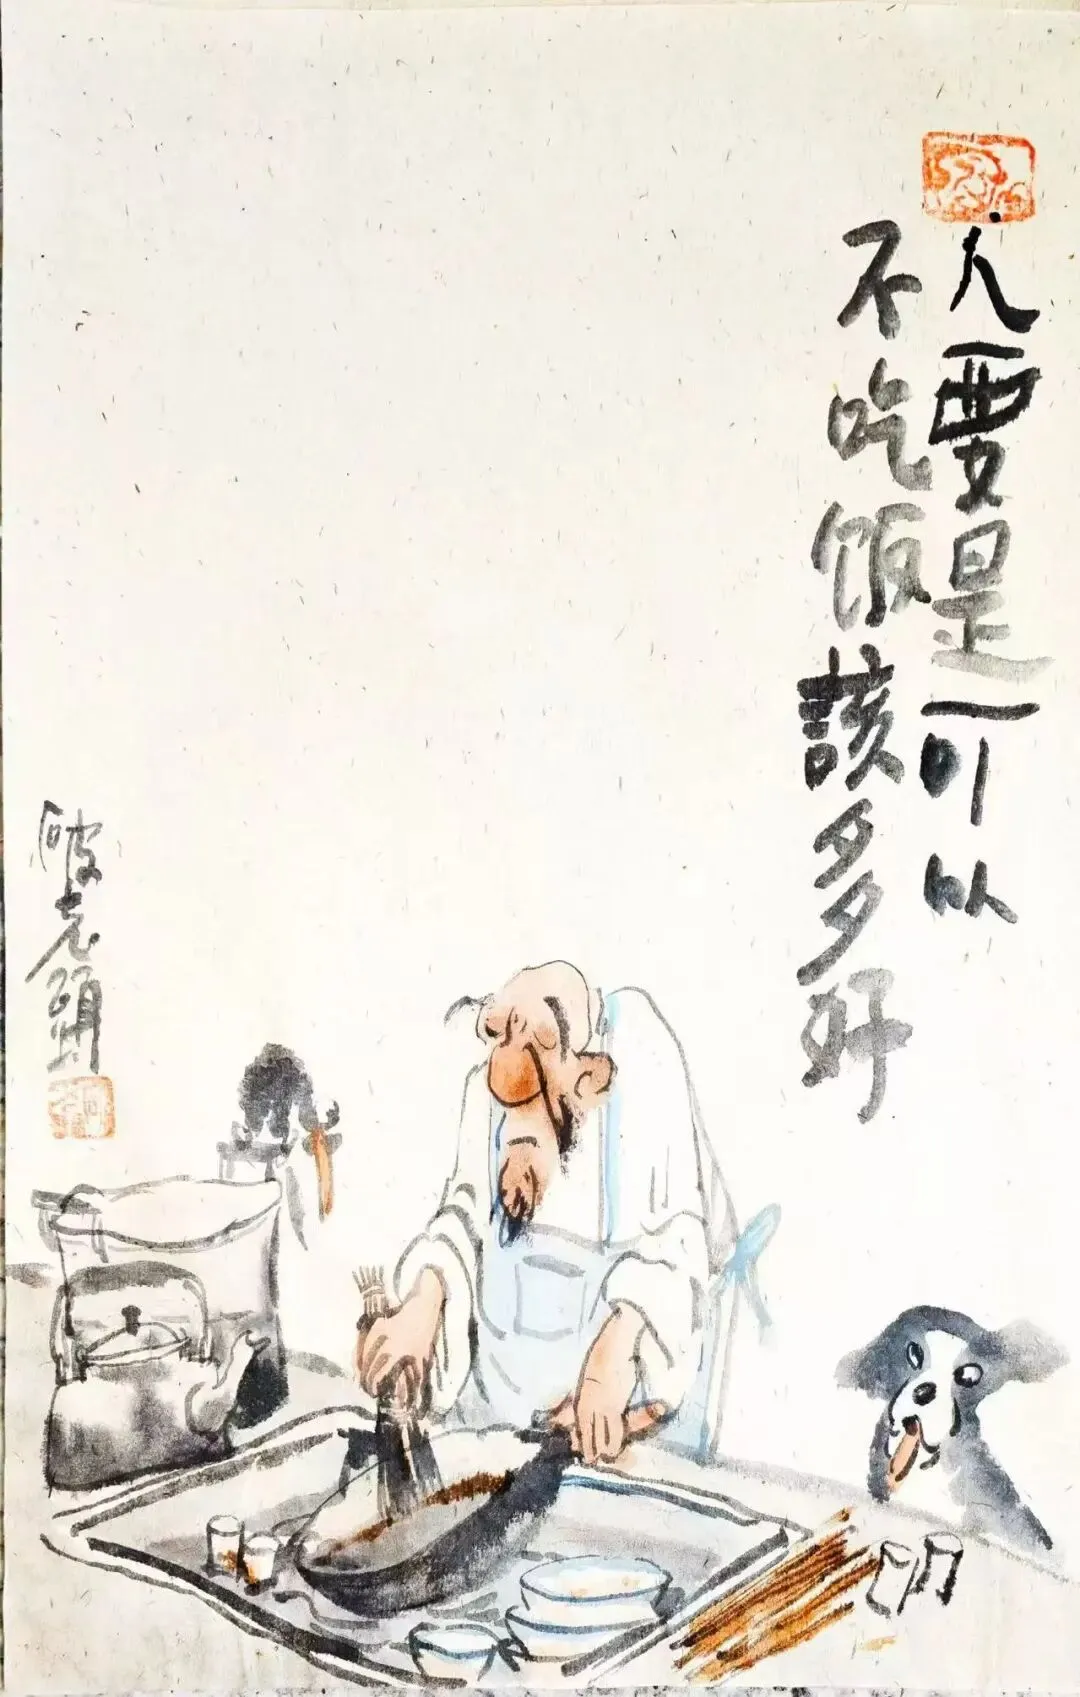 人要是可以
不吃饭該多好
破老頭